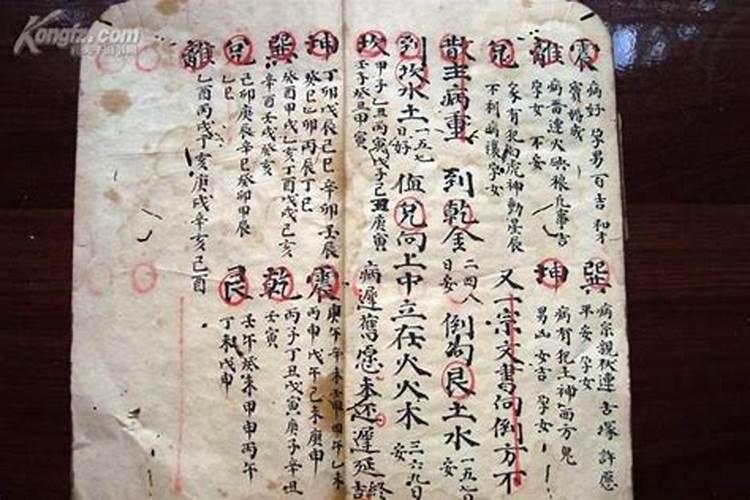 震 病好 孕男 百吉 和才
宝婚成
離 病苗連火 㱕糧 凡事吉
孕女 不安
兑 家有犯白虎神動星辰
不利 病讓孕女
巽 病宗親伏連 古塚許愿
平安 孕女
坤 病有犯土神西方鬼
男凶女吉 孕女
又一宗文書何倒方不
散主病重 到乾金 二四八日安 倒向艮土水 一五七日安
到坎水土 一五七日好 值兑向上中立在火火木 三六九日安
病遲舊愿未还遲延吉終
坎 甲子乙丑丙寅戊子己丑庚寅
壬子癸丑甲寅
坤 丁卯戊辰己巳辛卯壬辰
癸巳乙卯丙辰丁巳
巽 癸酉甲戌乙亥丁酉戊戌己亥
辛酉壬戌癸亥
兑 己卯庚辰辛巳癸卯甲辰
乙巳
離 乙酉丙戌丁亥庚戌辛亥己酉
震 庚午辛未壬申甲午乙未
丙申戊午己未庚申
乾 丙子丁丑戊寅庚子辛丑
壬寅
艮 壬午癸未甲申丙午
丁未戊申
Kongfz.com